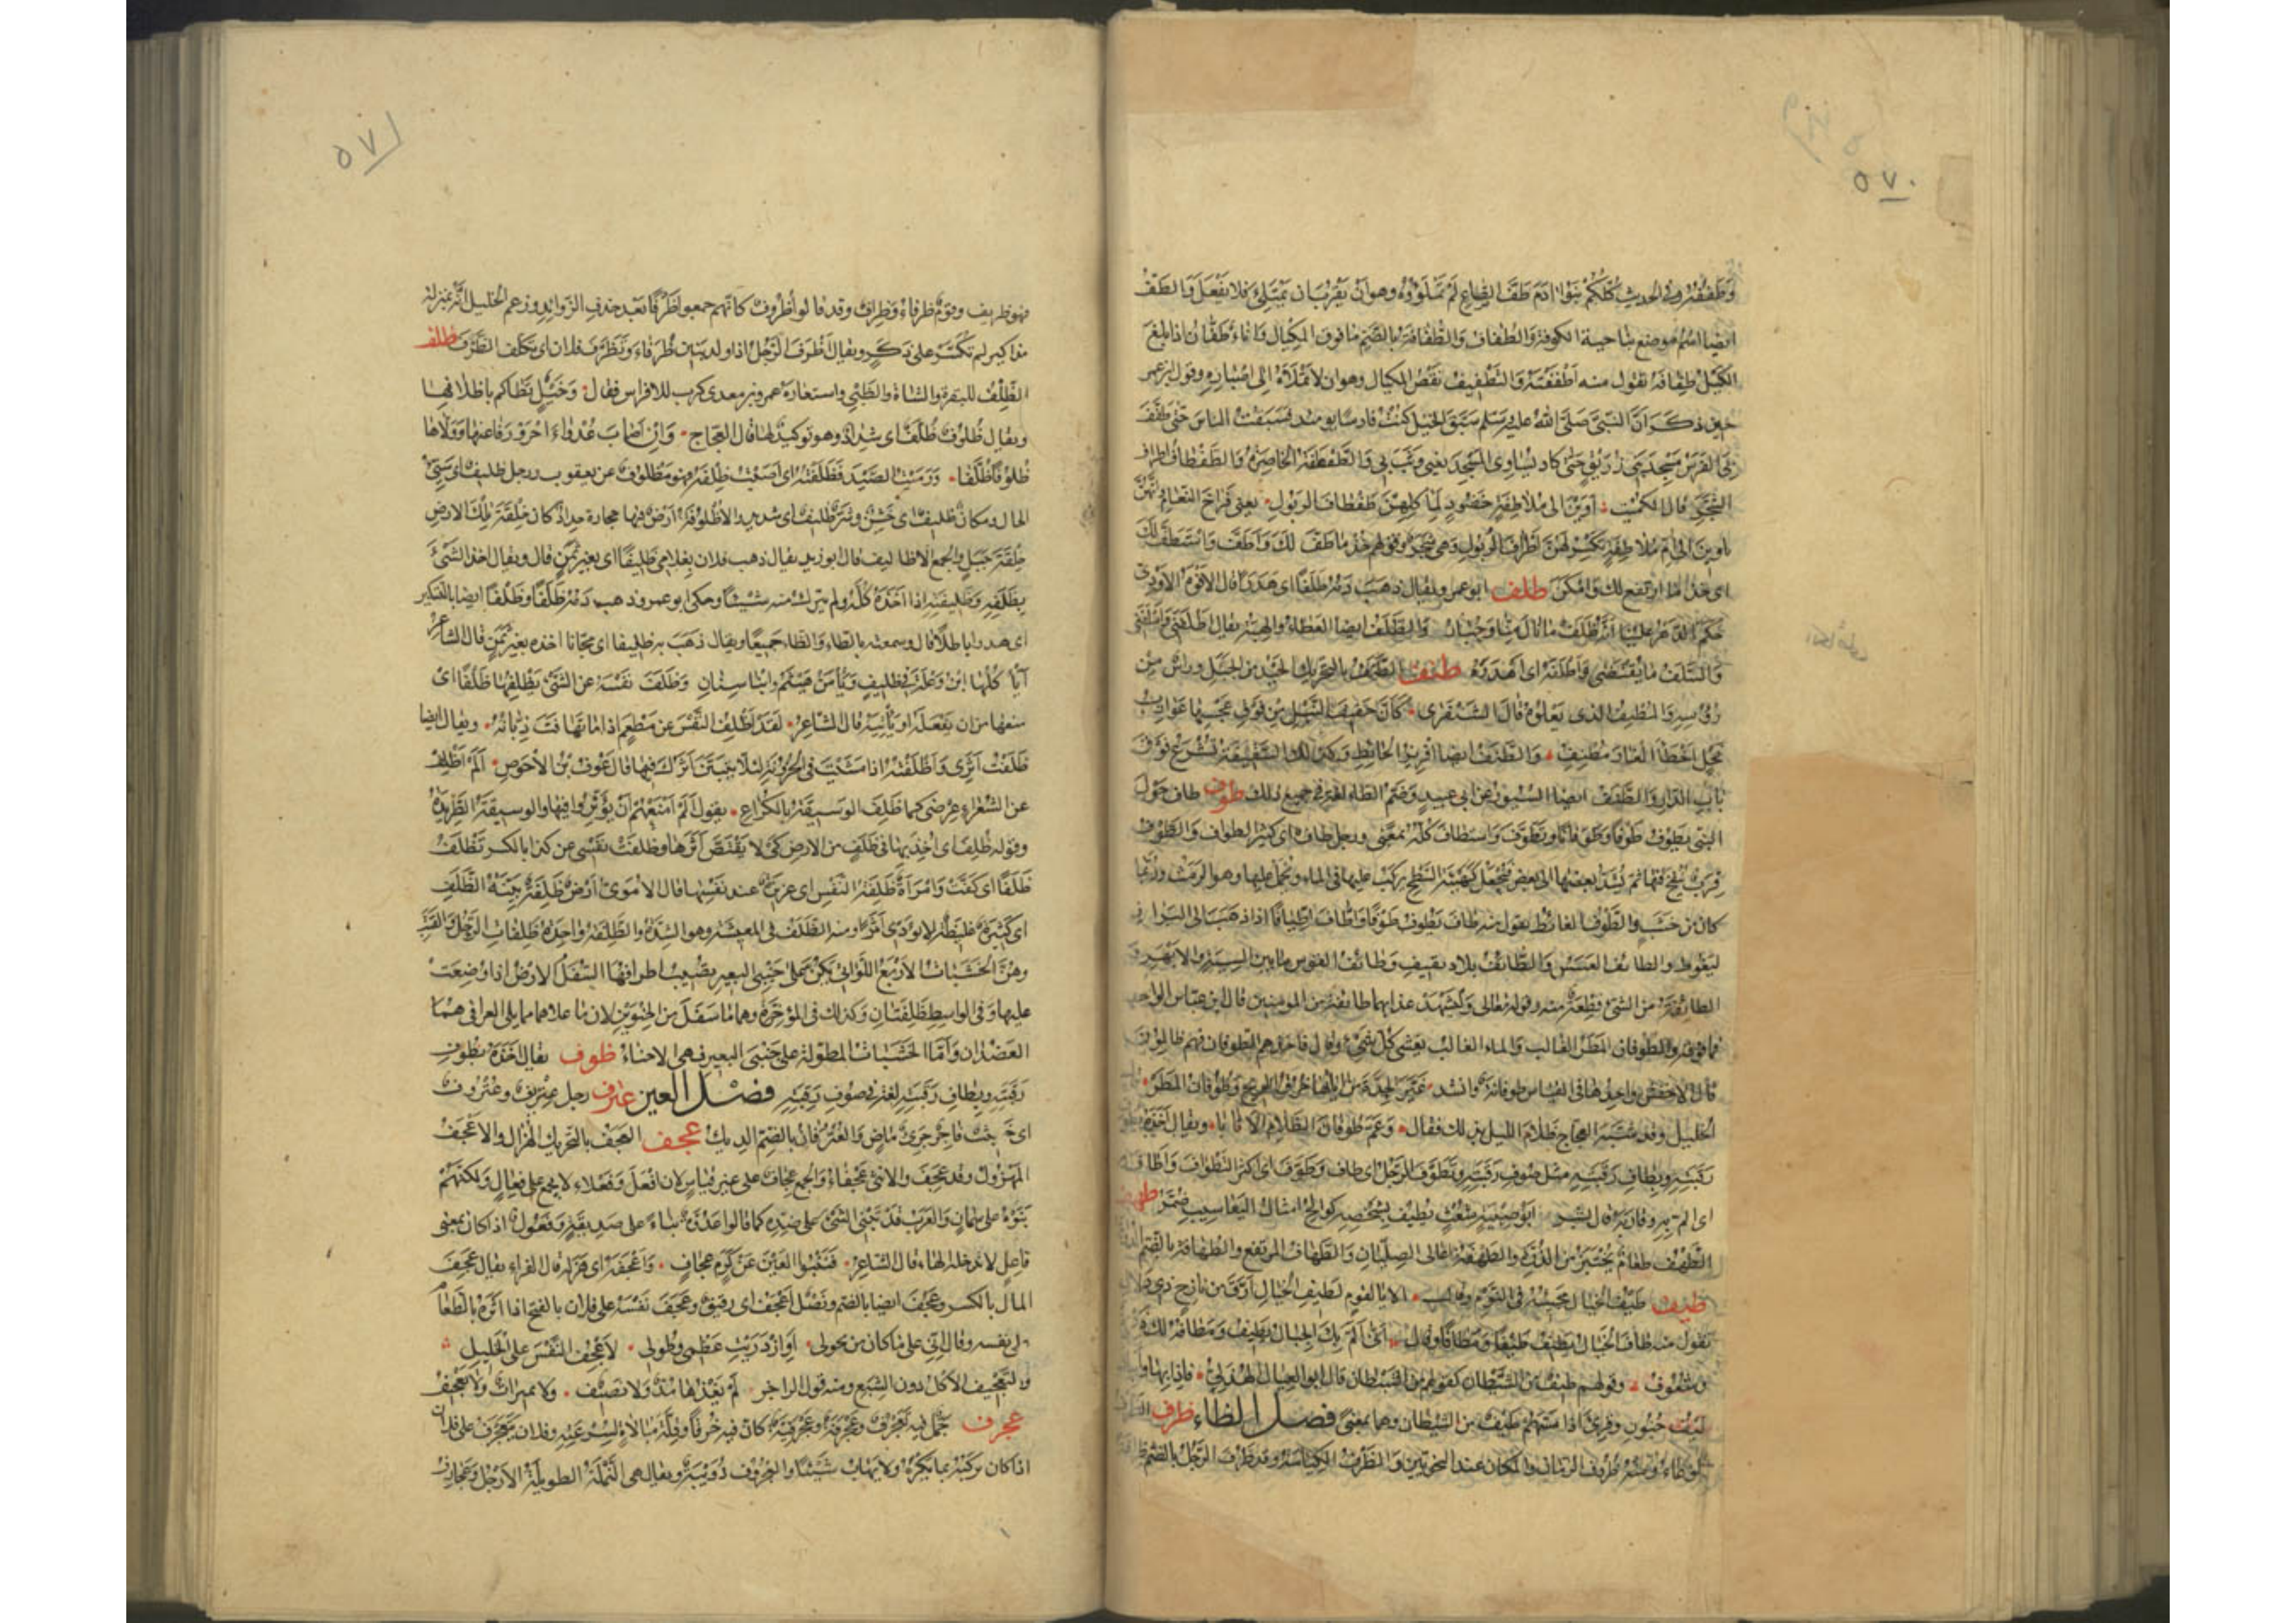 ٥٧٠
وطففته وفى الحديث كلكم بنوا ادم طف الصاع لم تملؤوه وهو ان يقرب ان يمتلئ فلا يفعل والطف
ايضا اسم موضع بناحية الكوفة والطفاف والطفافة بالضم ما فوق المكيال واناء طفان اذا بلغ
الكيل طفافه تقول منه اطففته والتطفيف نقص المكيال وهو ان لا تملأه الى اصباره وقول ابن عمر
حين ذكر ان النبى صلى الله عليه وسلم سبق الخيل كنت فارسا يومئذ فسبقت الناس حتى طفف
بى الفرس مسجد بنى زريق حتى كاد يساوى المسجد يعنى وثب بى والطفطفة الخاصرة والطفطاف اطراف
الشجر قال الكميت اوين الى ملاطفة خضود لمأكلهن طفطاف الربول يعنى فراخ النعام انهن
ياوين الى ام ملاطفة تكسر لهن اطراف الربول وهى شجر وقولهم خذ ما طف لك واطف واستطف لك
اى خذ ما ارتفع لك وامكن طلف ابو عمرو يقال ذهب دمه طلفا اى هدرا قال الافوه الاودى
حكم الدهر علينا انه طلف ما نال منا وجبار والطلف ايضا العطاء والهبة يقال اطلفنى واسلفنى
والسلف ما يقتضى واطلفه اى اهدره طنف الطنف بالتحريك الحيد من الجبل وراس من
رؤسه والمطنف الذى يعلوه قال الشنفرى كان حفيف النبل من فوق عجسها عوازب
نحل اخطا الغار مطنف والطنف ايضا افريز الحائط وكذلك السقيفة تشرع فوق
باب الدار والطنف ايضا السيور عن ابى عبيد وضم الطاء لغة فى جميع ذلك طوف طاف حول
البيت يطوف طوفا وطوفانا وتطوف واستطاف كله بمعنى ورجل طاف اى كثير الطواف والطوف
قرب ينفخ فيها ثم يشد بعضها الى بعض فتجعل كهيئة السطح يركب عليها فى الماء ويحمل عليها وهو الرمث وربما
كان من خشب والطوف الغائط تقول منه طاف يطوف طوفا واطاف اطيافا اذا ذهب الى البراز
ليتغوط والطائف العسس والطائف بلاد ثقيف وطائف القوس ما بين السية والابهر و
الطائفة من الشئ قطعة منه وقوله تعالى وليشهد عذابهما طائفة من المومنين قال ابن عباس الواحد
فما فوقه والطوفان المطر الغالب والماء الغالب يغشى كل شئ وقال فاخذهم الطوفان وهم ظالمون
قال الاخفش واحدها فى القياس طوفانة وانشد غير الجدة من اياتها خرق الريح وطوفان المطر
الخليل وقد شبه العجاج ظلام الليل بذلك فقال وعم طوفان الظلام الاثابا ويقال اخذه
رقبته وبطاف رقبته مثل صوف رقبته وتطوف الرجل اى طاف وطوف اى اكثر التطواف واطاف به
اى الم به وقاربه قال بشر ابو صبية شعث يطيف بشخصه كوالح امثال اليعاسيب ضمر طهف
الطهف طعام يختبز من الذرة والطهفة اعالى الصليان والطهاف المرتفع والطهافة بالضم
طيف طيف الخيال مجيئه فى النوم الا يا لقوم لطيف الخيال ارق من نازح ذى دلال
تقول منه طاف الخيال يطيف طيفا ومطافا وقال انى الم بك الخيال يطيف ومطافه لك
وشغوف وقولهم طيف من الشيطان كقولهم من الشيطان قال ابو العيال الهذلى فاذا بها وا
طيف جنون وقرئ اذا مسهم طيف من الشيطان وهما بمعنى فصل الظاء ظرف
الوعاء ومنه ظروف الزمان والمكان عند النحويين والظرف الكياسة وقد ظرف الرجل بالضم ظرافة
٥٧١
فهو ظريف وقوم ظرفاء وظراف وقد قالوا ظروف كانهم جمعوا ظرفا بعد حذف الزوائد وزعم الخليل انه بمنزلة
مذاكير لم تكسر على ذكر ويقال اظرف الرجل اذا ولد بنين ظرفاء وتظرف فلان اى تكلف الظرف ظلف
الظلف للبقرة والشاة والظبى واستعاره عمرو بن معدى كرب للافراس فقال وخيل تطاكم باظلافها
ويقال ظلوف ظلف اى شداد وهو توكيد لها قال العجاج وان اصاب عدواء احرورفا عنها وولاها
ظلوفا ظلفا ورميت الصيد فظلفته اى اصبت ظلفه فهو مظلوف عن يعقوب ورجل ظليف اى سيئ
الحال ومكان ظليف اى خشن وشر ظليف اى شديد الاظلوفة ارض فيها حجارة حداد كان خلقة تلك الارض
خلقة جبل والجمع الاظاليف قال ابو زيد يقال ذهب فلان بغلامى ظليفا اى بغير ثمن قال ويقال اخذ الشئ
بظلفه وظليفته اذا اخذه كله ولم يترك منه شيئا وحكى ابو عمرو ذهب دمه ظلفا وظلفا ايضا بالتسكير
اى هدرا باطلا قال وسمعته بالطاء والظاء جميعا ويقال ذهب به ظليفا اى مجانا اخذه بغير ثمن قال الشاعر
ايا كلها ابن وعلة فى ظليف ويأمن هيثم وابنا سنان وظلف نفسه عن الشئ يظلفها ظلفا اى
منعها من ان يفعله او يأتيه قال الشاعر لقد اظلف النفس عن مطعم اذا ما تهافت ذبانه ويقال ايضا
ظلفت اثرى واظلفته اذا مشيت فى الحزونة لئلا يتبين اثرك فيها قال عوف بن الاحوص الم اظلف
عن الشعراء عرضى كما ظلف الوسيقة بالكراع يقول الم امنعهم ان يؤثروا فيها والوسيقة الطريدة
وقوله ظلف اى اخذ بها فى ظلف من الارض كى لا يقتص اثرها وظلفت نفسى عن كذا بالكسر تظلف
ظلفا اى كفت وامراة ظلفة النفس اى عزيزة عند نفسها قال الاموى ارض ظلفة بينة الظلف
اى غليظة لا يودى اثرا ومنه الظلف فى المعيشة وهو الشدة والظلفة واحدة ظلفات الرحل والقتب
وهن الخشبات الاربع اللواتى يكن على جنبى البعير يصيب اطرافها السفلى الارض اذا وضعت
عليها وفى الواسط ظلفتان وكذلك فى المؤخرة وهما ما سفل من الحنوين لان ما علاهما مما يلى العراقى هما
العضدان واما الخشبات المطولة على جنبى البعير فهى الاحناء ظوف يقال اخذه بظوف
رقبته وبظاف رقبته لغة فى صوف رقبته فصل العين عترف رجل عتريف وعتروف
اى خبيث فاجر جرئ ماض والعترفان بالضم الديك عجف العجف بالتحريك الهزال والاعجف
المهزول وقد عجف والانثى عجفاء والجمع عجاف على غير قياس لان افعل وفعلاء لا يجمع على فعال ولكنهم
بنوه على سمان والعرب قد تبنى الشئ على ضده كما قالوا عدوة بناء على صديقة وفعول اذا كان بمعنى
فاعل لا تدخله الهاء قال الشاعر فنقبوا العين عن كرم عجاف واعجفه اى هزله قال الفراء يقال عجف
المال بالكسر وعجف ايضا بالضم ونصل اعجف اى رقيق وعجف نفسه على فلان بالفتح اذا اثره بالطعام
على نفسه وقال انى على ما كان من نحولى او ازدريت عظمى وطولى لاعجف النفس على الخليل
والتعجيف الاكل دون الشبع ومنه قول الراجز لم يغذها مد ولا نصيف ولا تميرات ولا تعجيف
عجرف جمل فيه تعجرف وعجرفة وعجرفية كان فيه خرقا وقلة مبالاة لسرعته وفلان يتعجرف على فلان
اذا كان يركبه بما يكره ولا يهاب شيئا والعجروف دويبة ويقال هى النملة الطويلة الارجل وعجاريف